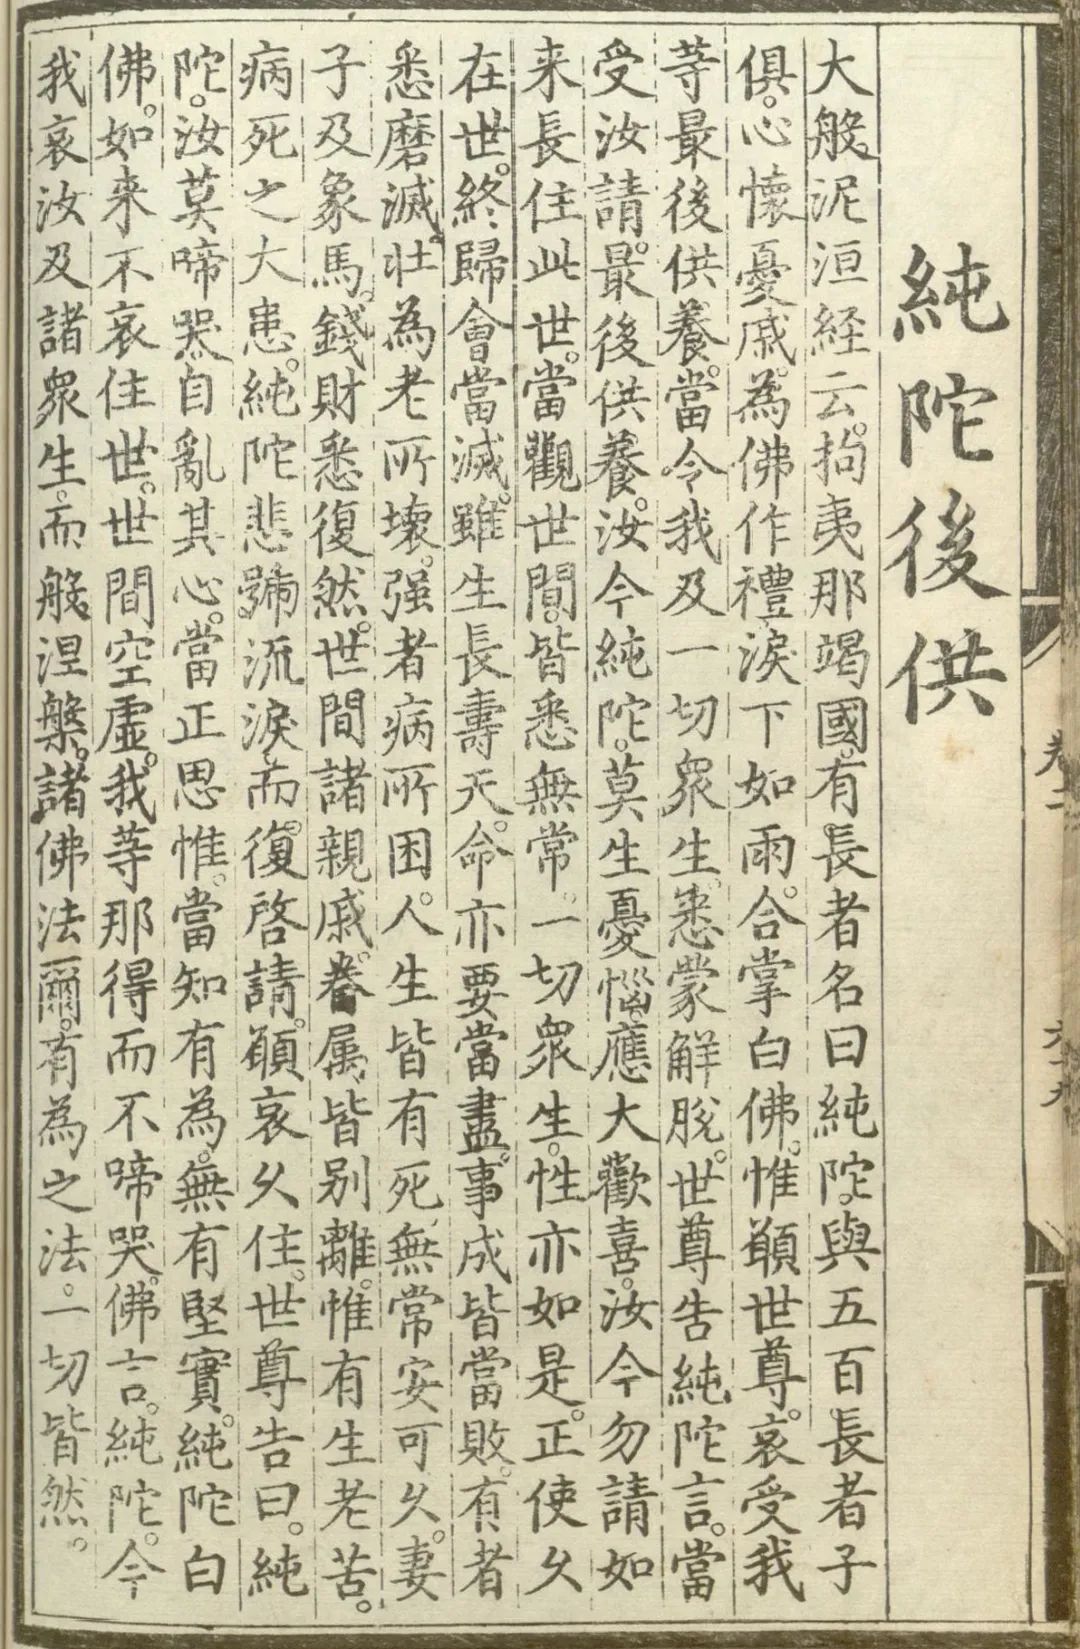 純陀後供
大般泥洹経云。拘夷那竭國。有長者名曰純陀。與五百長者子
俱。心懷憂戚。為佛作禮。淚下如雨。合掌白佛。惟願世尊。哀受我
等最後供養。當令我及一切眾生。悉蒙解脫。世尊告純陀言。當
受汝請。最後供養。汝今純陀。莫生憂惱。應大歡喜。汝今勿請如
来長住此世。當觀世間。皆悉無常。一切眾生。性亦如是。正使久
在世。終歸會當滅。雖生長壽天。命亦要當盡。事成皆當敗。有者
悉磨滅。壯為老所壞。强者病所困。人生皆有死。無常安可久。妻
子及象馬。錢財悉復然。世間諸親戚。眷属皆別離。惟有生老苦。
病死之大患。純陀悲號流淚。而復啓請。願哀久住。世尊告曰。純
陀。汝莫啼哭。自亂其心。當正思惟。當知有為。無有堅實。純陀白
佛。如来不哀住世。世間空虛。我等那得而不啼哭。佛言。純陀。今
我哀汝及諸眾生。而般涅槃。諸佛法爾。有為之法。一切皆然。